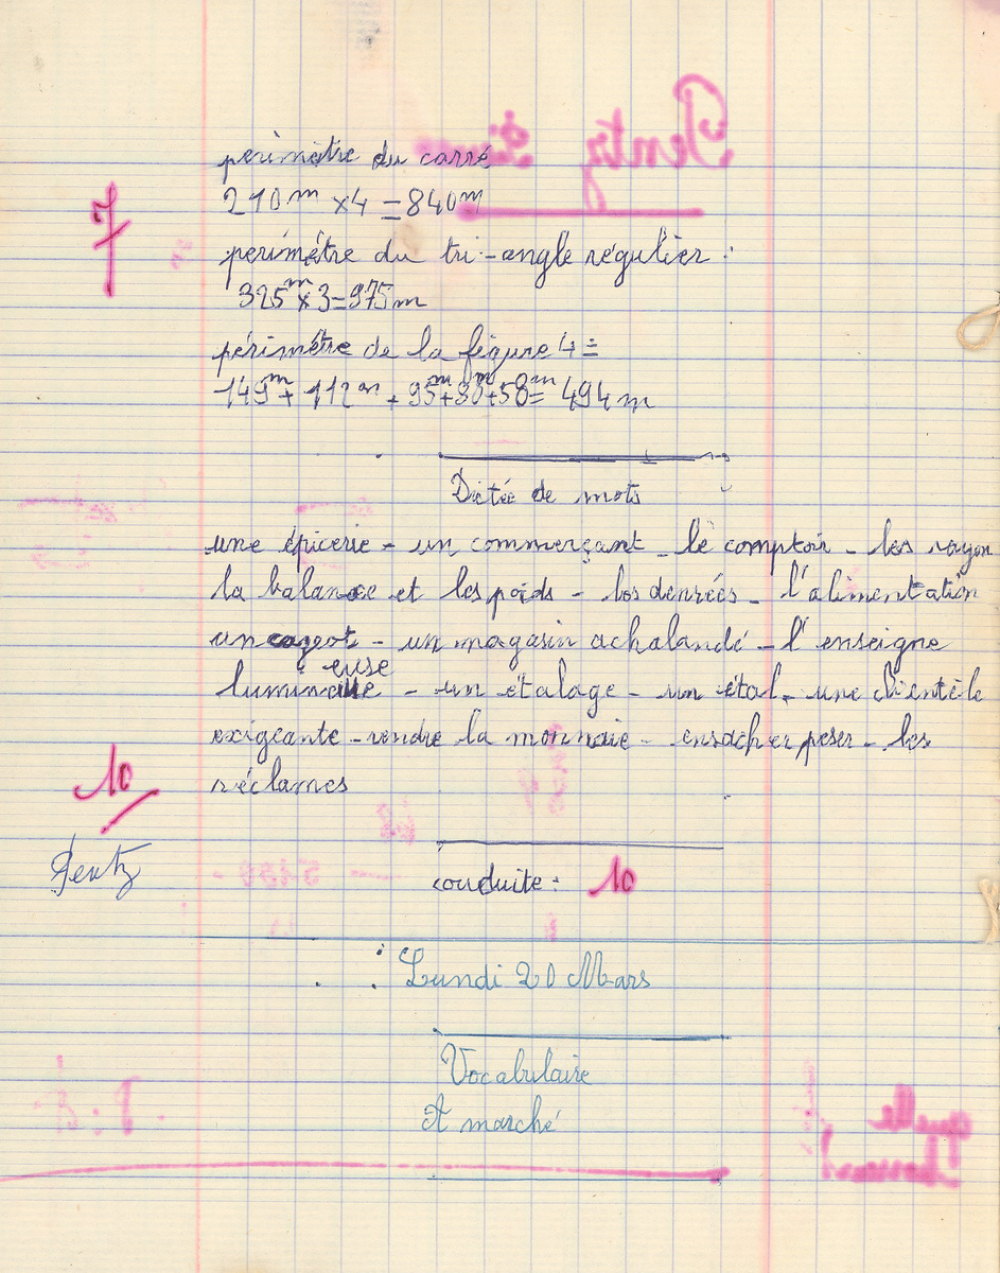 périmètre du carré
210 m x 4 = 840 m
7
périmétre du tri-angle régulier :
325 m x 3 = 975 m
périmétre de la figure 4 =
149 m + 112 m + 95 m + 80 m + 58 m = 494 m
Dictée de mots
une épicerie - un commerçant - le comptoir - les rayon
la balance et les poids - les denrées - l'alimentation
un cageot - un magasin achalandé - l'enseigne
euse
lumin - un étalage - un étal - une clientèle
exigeante - rendre la monnaie - ensacher peser - les
réclames
10
Pentz
conduite : 10
Lundi 20 Mars
Vocabulaire
A marché